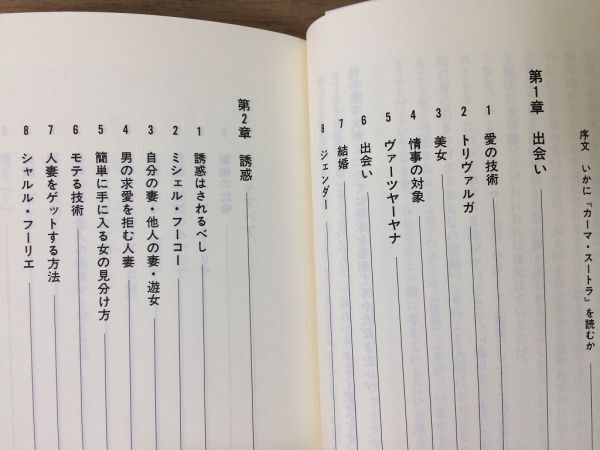 序文　いかに『カーマ・スートラ』を読むか
第1章　出会い
1　愛の技術
2　トリヴァルガ
3　美女
4　情事の対象
5　ヴァーツヤーヤナ
6　出会い
7　結婚
8　ジェンダー
第2章　誘惑
1　誘惑はされるべし
2　ミシェル・フーコー
3　自分の妻・他人の妻・遊女
4　男の求愛を拒む人妻
5　簡単に手に入る女の見分け方
6　モテる技術
7　人妻をゲットする方法
8　シャルル・フーリエ